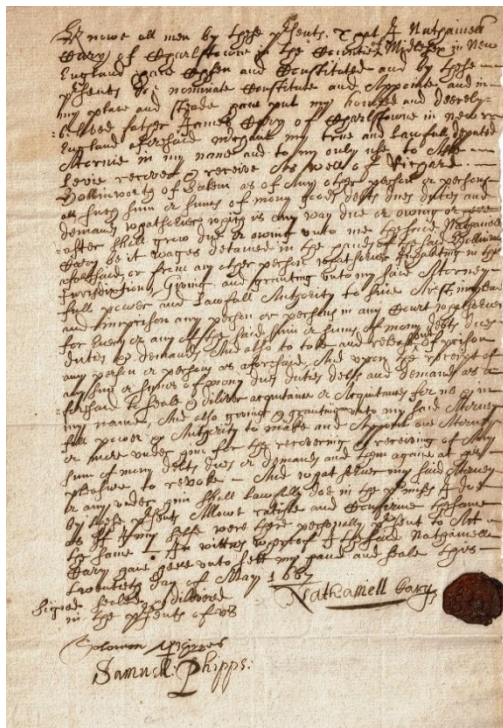 Know all men by these p'sents. That I Nathaniell
Cary of Charlstowne in the Countie of Midlesex in New
England have Chosen and Constituted and by these
p'sents do nominate Constitute and Appointe and in
my place and steade have put my honored and dearly
beloved father James Cary of Charlstowne in New
England aforesaid my true and lawfull deputed
Atornie in my name and to my only use to Aske
Levie recover & receive As well of Richard
Hollinworth of Salem as of Any other person or persons
all such sum or sumes of mony goods debts dues duties and
demands whatsoever which is any way due or owing or here
after shall grow due or owing unto me the said Nathaniell
Cary be it wages detained in the hands of the said Hollin
aforesaid or from any other person whatsoever Inhabiting in this
Jurisdiction, Giving and granting unto my said Attorney
full power and lawfull Authority to sue Arest
and imprison any person or persons in any Court whatsoever
for Every or any of the said sum or sumes of mony debts dues
duties & demands, And also to take and release
any person or persons as aforesaid, And upon the receipt of
any sum or sumes of mony dues duties debts and demands as a
foresaid to seale & diliver acquitance or Acquitances for no
my name, And also giving & granting unto my said Atorney
full power & Authority to make and Appoint one Atorney
or more under him for the recovering & receiving of Any
sum of mony debts dues or demands and them againe at his
pleasure to revoke — And whatsoever my said Atorney
or any under him shall lawfully doe in the p'mises I doe
by these p'sents Allowe ratifie and Confirme the same
as if I my selfe were there personally present to Act
the same. In wittnes whereof I the said Nathaniell
Cary have here unto sett my hand and seale this
twentieth day of May 1667
Signed sealed & dilivred
Nathaniell Cary
in the p'sents of us
Solomon Phipps
Samuell Phipps.